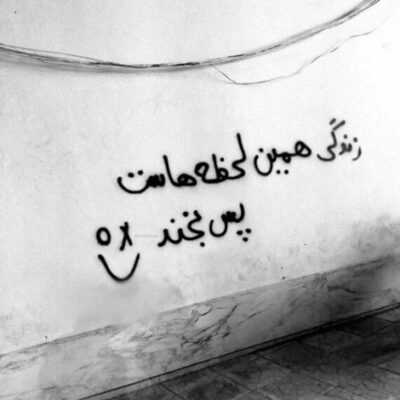 زندگی همین لحظه هاست
پس بخند